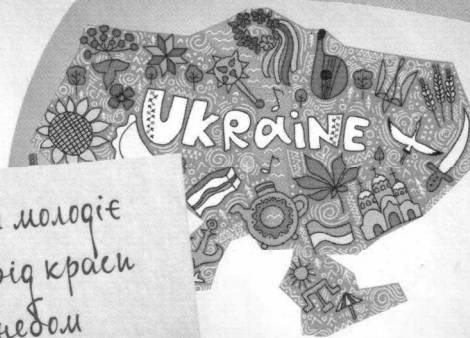 UKRAINE
молодіє
від краси
небом